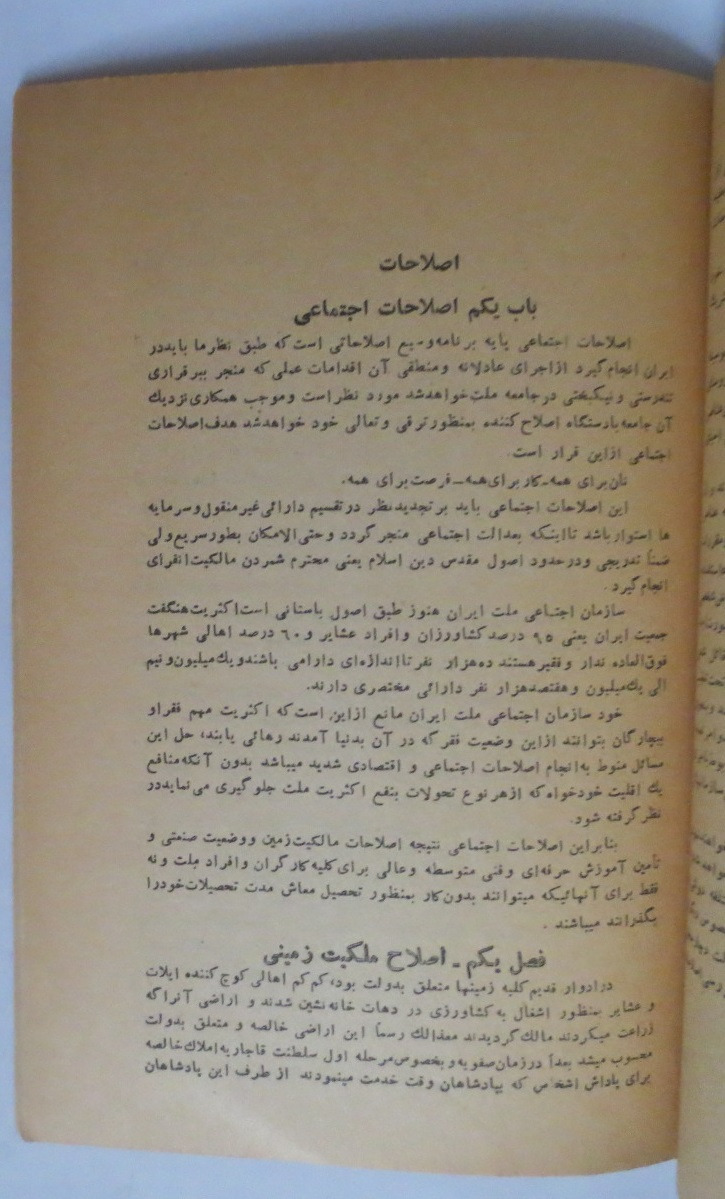 اصلاحات
باب یکم اصلاحات اجتماعی
اصلاحات اجتماعی پایه برنامه وسیع اصلاحاتی است که طبق نظر ما باید در
ایران انجام گیرد از اجرای عادلانه و منطقی آن اقدامات عملی که منجر ببرقراری
تندرستی و نیکبختی در جامعه ملت خواهد شد مورد نظر است و موجب همکاری نزدیك
آن جامعه با دستگاه اصلاح کننده بمنظور ترقی و تعالی خود خواهد شد هدف اصلاحات
اجتماعی از این قرار است.
نان برای همه ـ کار برای همه ـ فرصت برای همه.
این اصلاحات اجتماعی باید بر تجدید نظر در تقسیم دارائی غیر منقول و سرمایه
ها استوار باشد تا اینکه بعدالت اجتماعی منجر گردد و حتی الامکان بطور سریع ولی
ضمناً تدریجی و در حدود اصول مقدس دین اسلام یعنی محترم شمردن مالکیت انفرای
انجام گیرد.
سازمان اجتماعی ملت ایران هنوز طبق اصول باستانی است اکثریت هنگفت
جمعیت ایران یعنی ۹۵ درصد کشاورزان و افراد عشایر و ۶۰ درصد اهالی شهرها
فوق العاده ندار و فقیر هستند ده هزار نفر تا اندازه‌ای دارا می باشند و یك میلیون و نیم
الی یك میلیون و هفتصد هزار نفر دارائی مختصری دارند.
خود سازمان اجتماعی ملت ایران مانع از این است که اکثریت مهم فقرا و
بیچارگان بتوانند از این وضعیت فقر که در آن بدنیا آمدند رهائی یابند، حل این
مسائل منوط به انجام اصلاحات اجتماعی و اقتصادی شدید میباشد بدون آنکه منافع
یك اقلیت خودخواه که از هر نوع تحولات بنفع اکثریت ملت جلوگیری می نماید در
نظر گرفته شود.
بنابراین اصلاحات اجتماعی نتیجه اصلاحات مالکیت زمین و وضعیت صنعتی و
تأمین آموزش حرفه‌ای و فنی متوسطه و عالی برای کلیه کارگران و افراد ملت و نه
فقط برای آنهائیکه میتوانند بدون کار بمنظور تحصیل معاش مدت تحصیلات خود را
بگذرانند میباشند .
فصل یکم ـ اصلاح ملکیت زمینی
در ادوار قدیم کلیه زمینها متعلق بدولت بود، کم کم اهالی کوچ کننده ایلات
و عشایر بمنظور اشغال به کشاورزی در دهات خانه نشین شدند و اراضی آنرا که
زراعت میکردند مالك گردیدند معذالك رسماً این اراضی خالصه و متعلق بدولت
محسوب میشد بعداً در زمان صفویه و بخصوص مرحله اول سلطنت قاجاریه املاك خالصه
برای پاداش اشخاص که بپادشاهان وقت خدمت مینمودند از طرف این پادشاهان